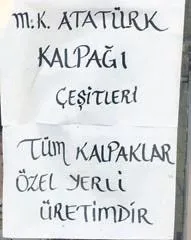 M.K. ATATÜRK
KALPAĞI
ÇEŞİTLERİ
TÜM KALPAKLAR
ÖZEL YERLİ
ÜRETİMDİR